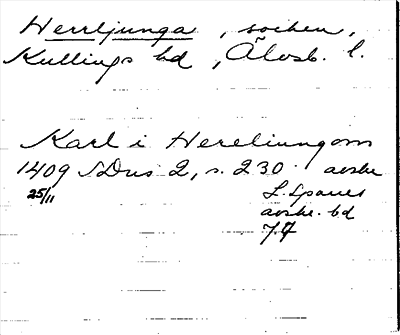 Herrljunga, socken,
Kullings hd, Älvsb. l.
Karl i Hereliungom
1409 SDns 2, s. 230. avskr
25/11
L. Sparres
avskr. bd
74